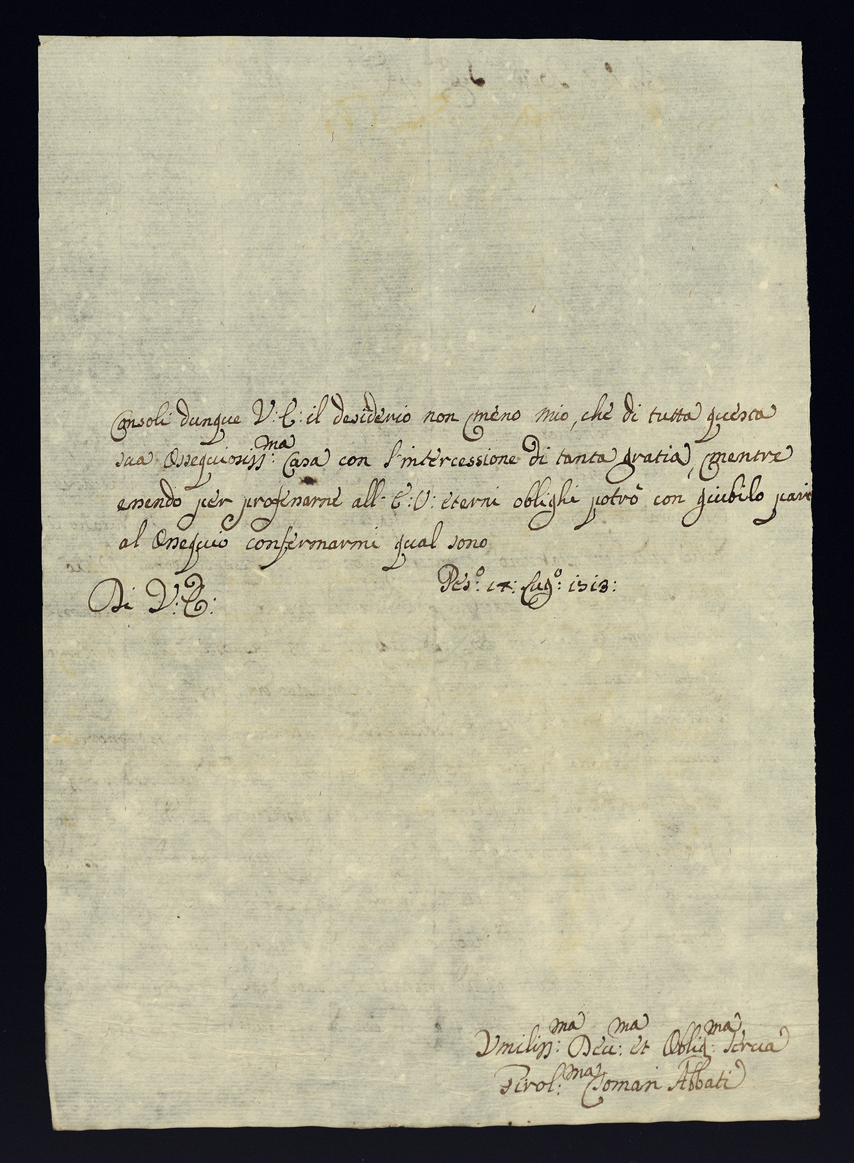 Consoli dunque V: E: il desiderio non meno mio, che di tutta questa
sua Ossequiosiss:ma Casa con l'intercessione di tanta gratia, mentre
essendo per professarne all' E: V: eterni oblighi potrò con giubilo pari
al Ossequio confermarmi qual sono
Di V: E: Pes:o 14: Lug:o
Vmiliss:ma Deu:ma et Oblig:ma Serua
Girol:ma Tomasi Abbati